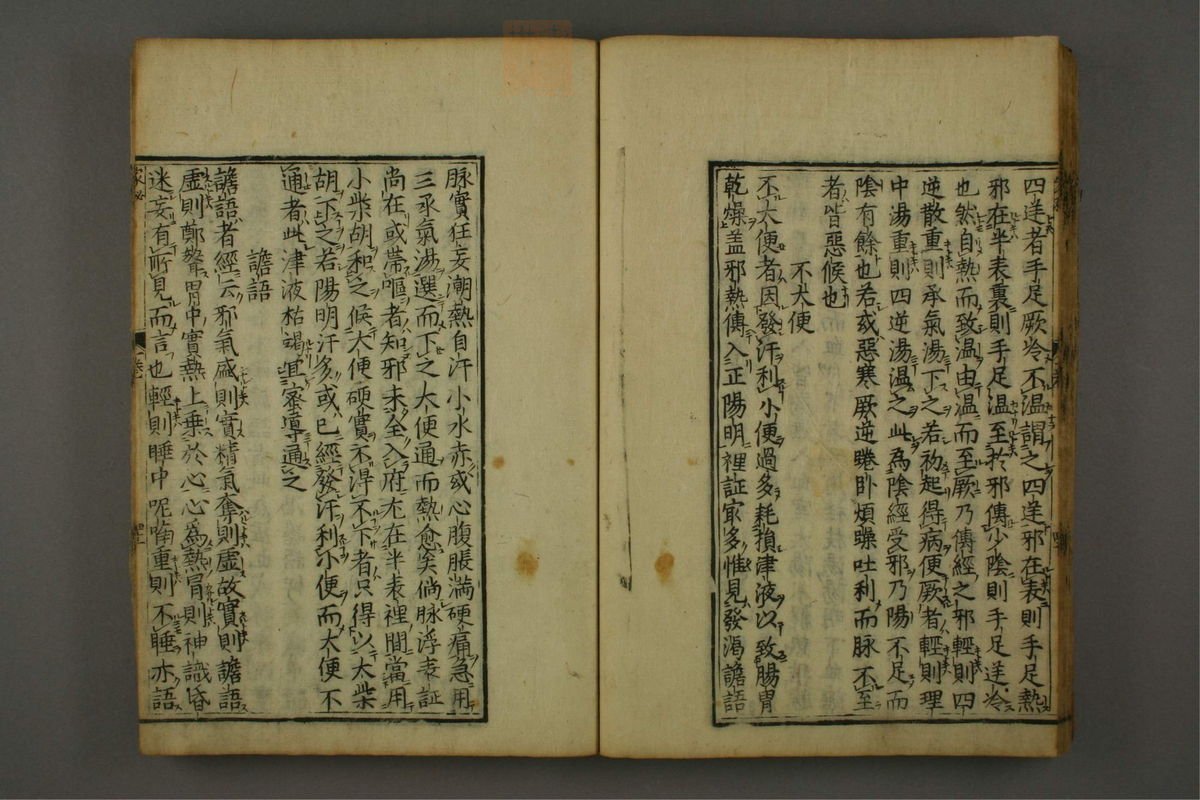 四逆者手足厥冷不温謂之四逆邪在表則手足熱
邪在半表裏則手足温至於邪傳少陰則手足逆冷
也然自熱而致温由温而至厥乃傳經之邪輕則四
逆散重則承氣湯下之若初起得病便厥者輕則理
中湯重則四逆湯温之此為陰經受邪乃陽不足而
陰有餘也若或惡寒厥逆踡卧煩躁吐利而脉不至
者皆惡候也
不大便
不大便者因發汗利小便過多耗損津液以致腸胃
乾燥盖邪熱傳入正陽明裡証最多惟見發渴譫語
脉實狂妄潮熱自汗小水赤或心腹脹満硬痛急用
三承氣湯選而下之大便通而熱愈矣倘脉浮表証
尚在或帯嘔者知邪未全入府尤在半表裡間當用
小柴胡和之候大便硬實不得不下者只得以大柴
胡下之若陽明汗多或已經發汗利小便而大便不
通者此津液枯竭宜蜜導通之
譫語
譫語者經云邪氣盛則實精氣奪則虚故實則譫語
虚則鄭聲胃中實熱上乗於心心為熱冒則神識昏
迷妄有所見而言也輕則睡中呢喃重則不睡亦語